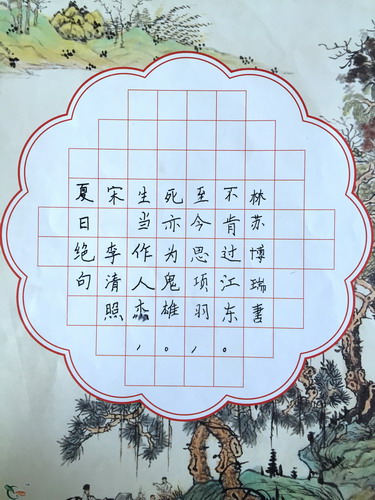 夏日绝句
宋 李清照
生当作人杰，
死亦为鬼雄。
至今思项羽，
不肯过江东。
林苏博瑞書